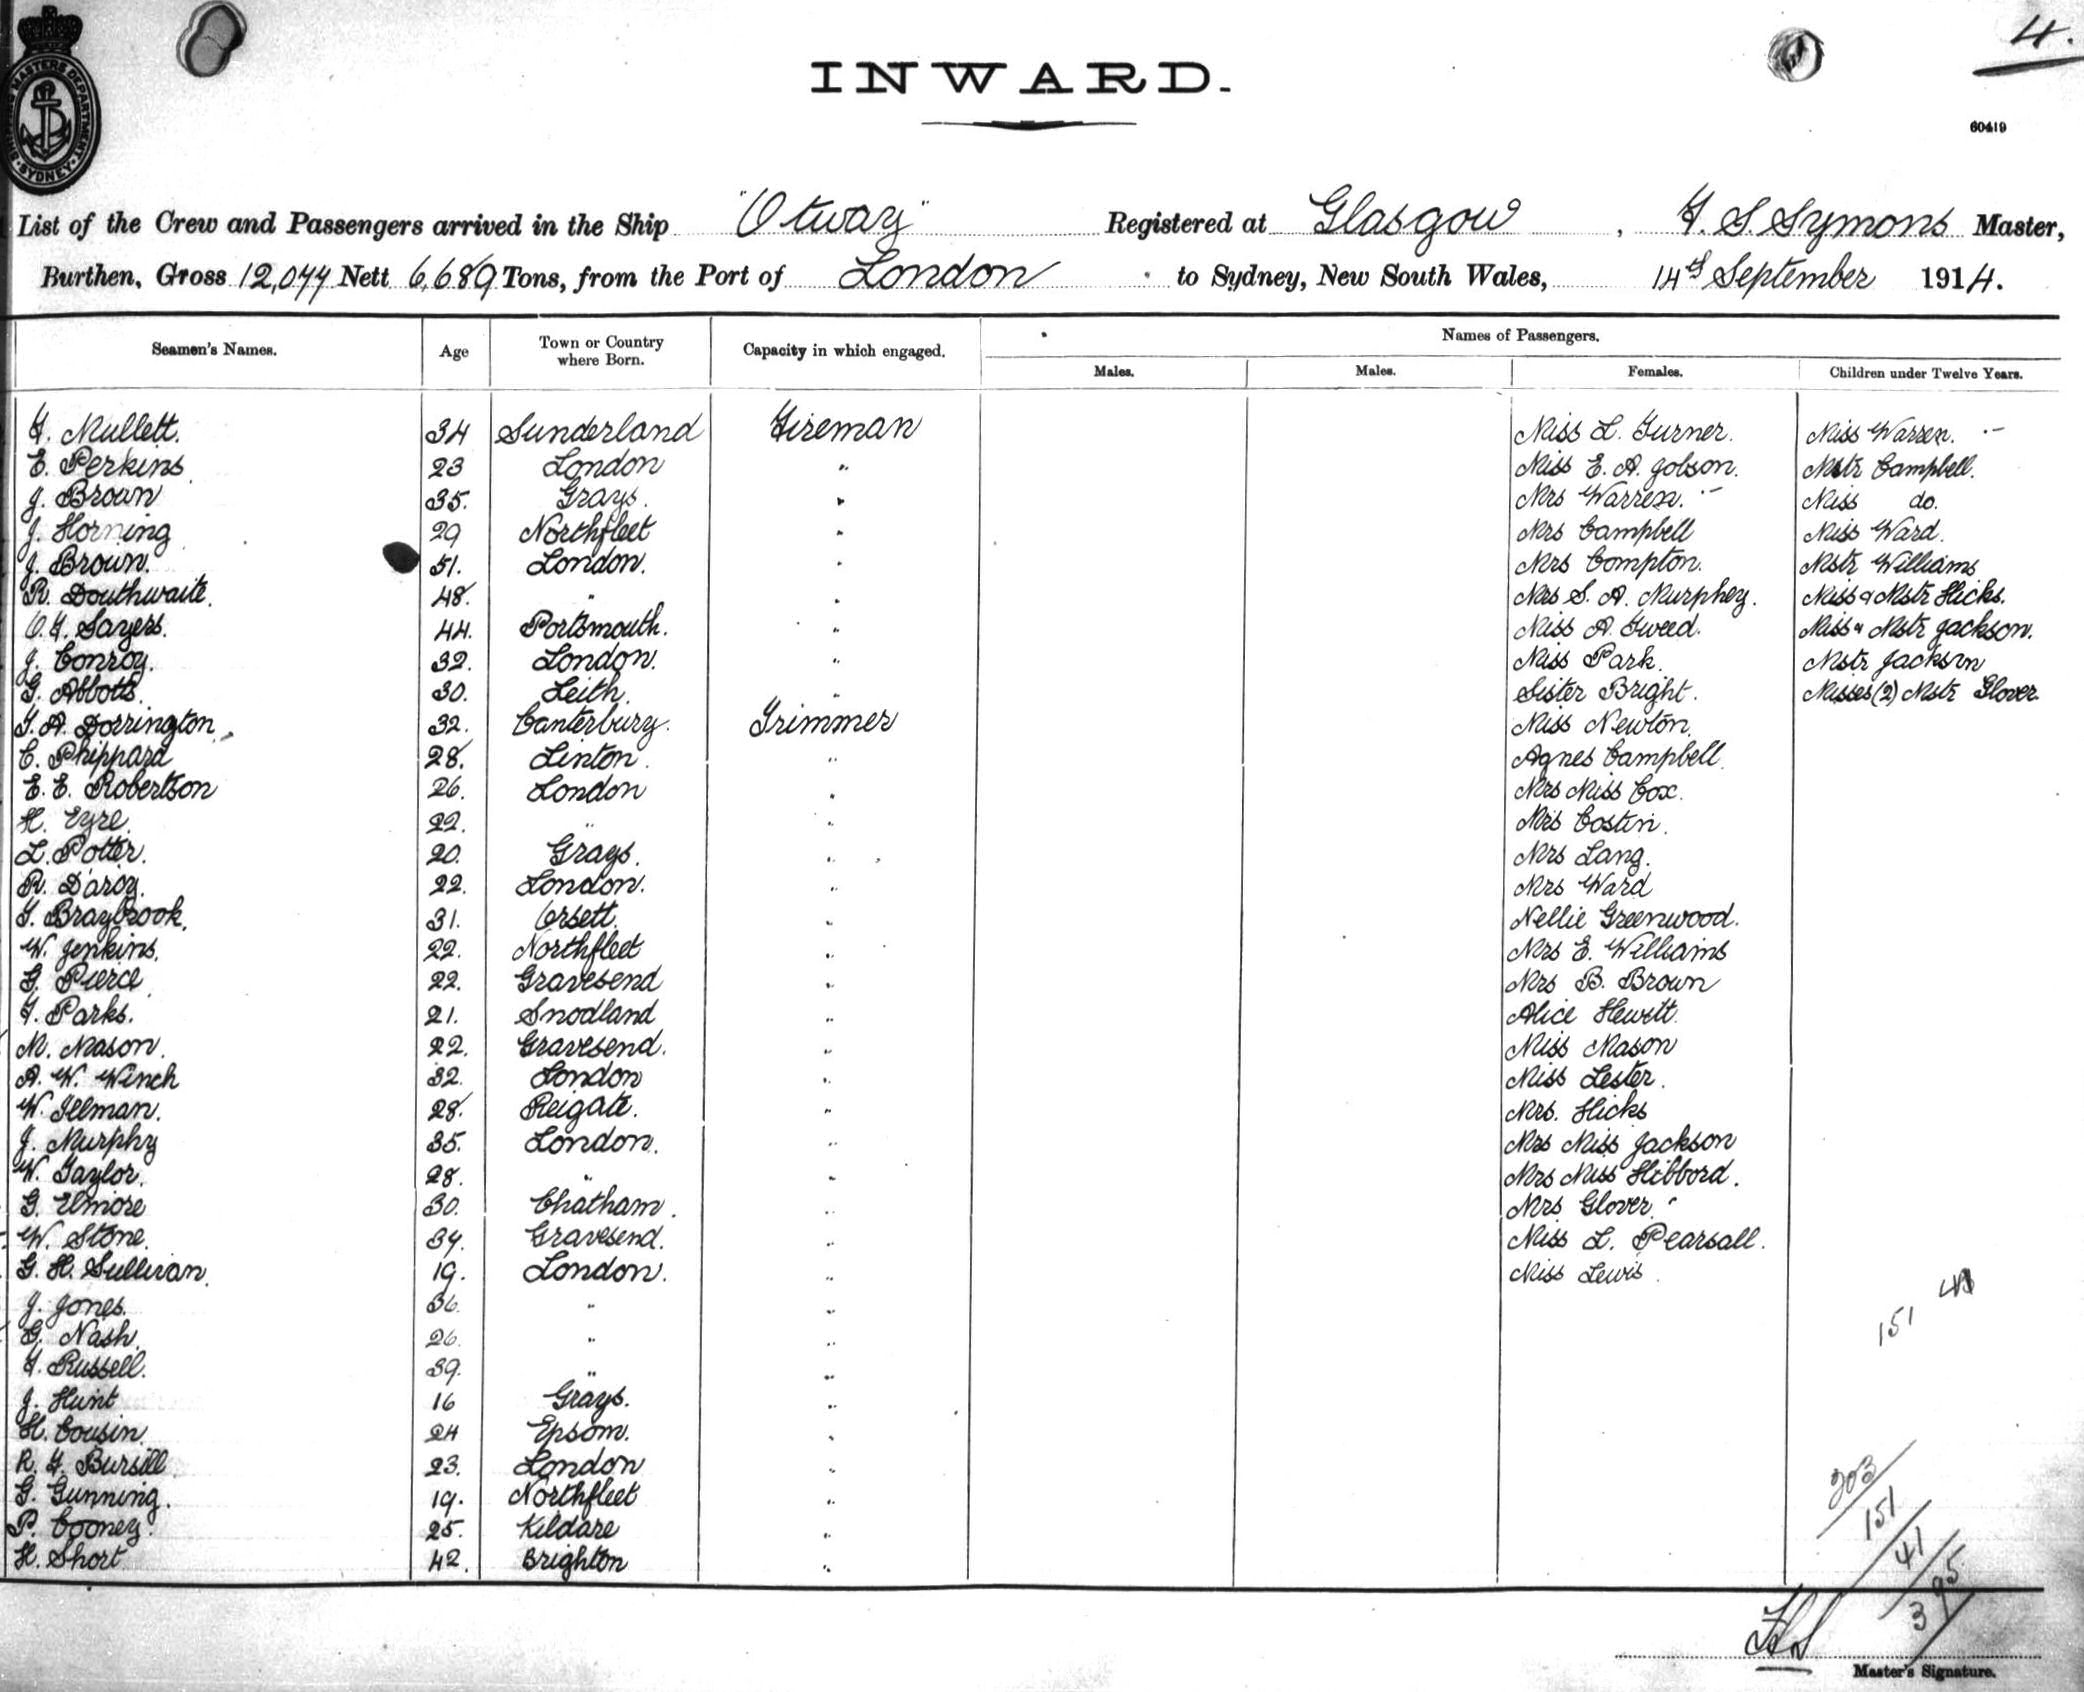 4.
SHIPPING MASTERS DEPARTMENT · SYDNEY ·
INWARD.
60419
List of the Crew and Passengers arrived in the Ship "Otway" Registered at Glasgow, F. S. Symons Master,
Burthen, Gross 12,077 Nett 6,689 Tons, from the Port of London to Sydney, New South Wales, 14th September 1914.
Seamen's Names. Age Town or Country where Born. Capacity in which engaged. Names of Passengers.
Males. Males. Females. Children under Twelve Years.
F. Mullett. 34 Sunderland Fireman Miss L. Turner. Miss Warren. –
E. Perkins 23 London " Miss E. A. Jobson. Mstr Campbell.
J. Brown 35. Grays. " Mrs Warren. – Miss do.
J. Horning 29 Northfleet " Mrs Campbell Miss Ward.
J. Brown. 51. London. " Mrs Compton. Mstr Williams
R. Douthwaite. 48. " " Mrs S. A. Murphey. Miss & Mstr Hicks.
O. F. Sayers. 44. Portsmouth. " Miss A. Tweed. Miss & Mstr Jackson.
J. Conroy. 32. London. " Miss Park. Mstr Jackson
G. Abbotts. 30. Leith. " Sister Bright. Misses (2) Mstr Glover.
T. A. Dorrington. 32. Canterbury. Trimmer Miss Newton.
C. Phippard 28. Linton. " Agnes Campbell.
E. E. Robertson 26. London " Mrs Miss Cox.
H. Eyre. 22. " " Mrs Costin.
L. Potter. 20. Grays. " Mrs Lang.
R. Darcy. 22. London. " Mrs Ward
T. Braybrook. 31. Orsett. " Nellie Greenwood.
W. Jenkins. 22. Northfleet " Mrs E. Williams
G. Pierce 22. Gravesend " Mrs B. Brown
F. Parks. 21. Snodland " Alice Hewitt.
M. Mason. 22. Gravesend. " Miss Mason
A. W. Winch 32. London " Miss Lester.
W. Illman. 28. Reigate. " Mrs. Hicks
J. Murphy 35. London. " Mrs Miss Jackson
W. Taylor. 28. " " Mrs Miss Hibbord.
G. Elmore 30. Chatham. " Mrs Glover.
W. Stone. 34. Gravesend. " Miss L. Pearsall.
G. H. Sullivan. 19. London. " Miss Lewis.
J. Jones. 36. " "
G. Nash. 26. " " 151
F. Russell. 39. " "
J. Hunt 16 Grays. "
H. Cousin. 24 Epsom. "
R. F. Bursill 23. London "
G. Gunning. 19. Northfleet "
P. Cooney. 25. Kildare "
H. Short 42. Brighton "
203
151
41
395
Master's Signature.